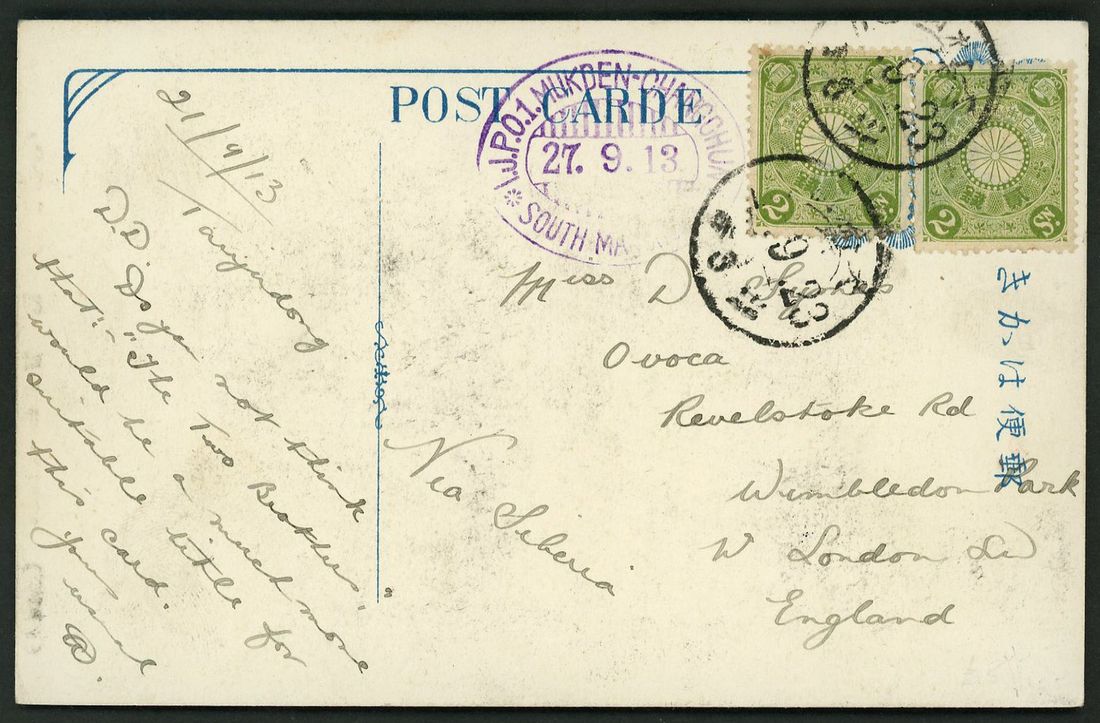 POST CARDE
I.J.P.O.1. MUKDEN-CHANGCHUN
27. 9. 13
SOUTH MA
2 Sn.
2 Sn.
きかは便郵
21/9/13
D.D. Do you not think
that:- "The Two Brothers"
would be a much more
suitable title for
this card.
Yours
Miss D
Ovoca
Revelstoke Rd
Wimbledon Park
London
England
Via Siberia